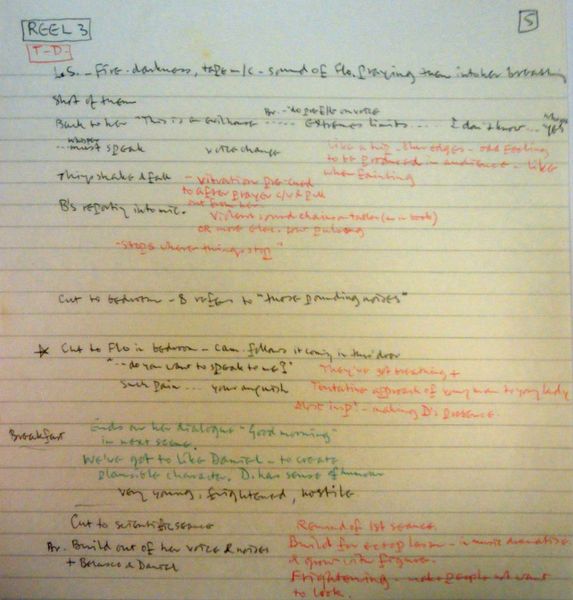 REEL 3
5
T-D-
L.S. - Fire. darkness, tape m/c - sound of Flo. praying then into her breathing
Shot of them
Back to her "This is an evil house ...... extremes limits .... I don't know ... YES
... must speak voice change
Like a trip - blur edges - odd feeling
to be produced in audience - like
when fainting
Things shake & fall - vibration
to after prayer c/u & pull
out from her
B's reporting into mic.
Violent sound chairs on table (as in book)
OR more elec. low pulsing
"Stops where things stop"
Cut to bedroom - B refers to "those pounding noises"
* Cut to Flo in bedroom - cam. follows it coming in thru door
"... do you want to speak to me?"
They've got breathing +
Such pain ... your anguish
Tentative approach of young man to young lady
- making D's presence.
Breakfast
Ends on her dialogue "Good morning"
in next scene.
We've got to like Daniel - to create
plausible character. D. has sense of humour
very young, frightened, hostile
Cut to scientific seance
Remind of 1st seance.
Av. Build out of her voice & noises
+ Belasco & Daniel
Build for ectoplasm - in music dramatise
& grow with figures.
Frightening - make people not want
to look.